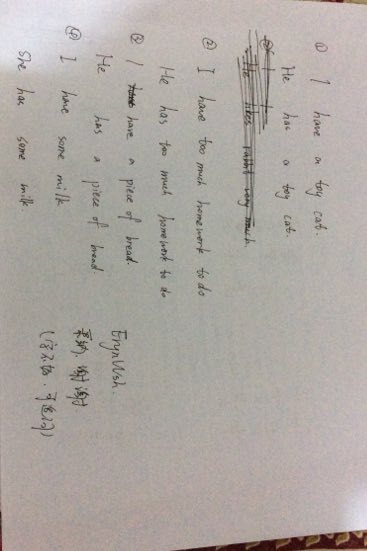 ① I have a toy cat.
He has a toy cat.
He likes rabbit very much
② I have too much homework to do
He has too much homework to do
③ I have a piece of bread.
He has a piece of bread.
④ I have some milk
She has some milk
ErynWsh.
采纳，谢谢
(字不好，可追问)